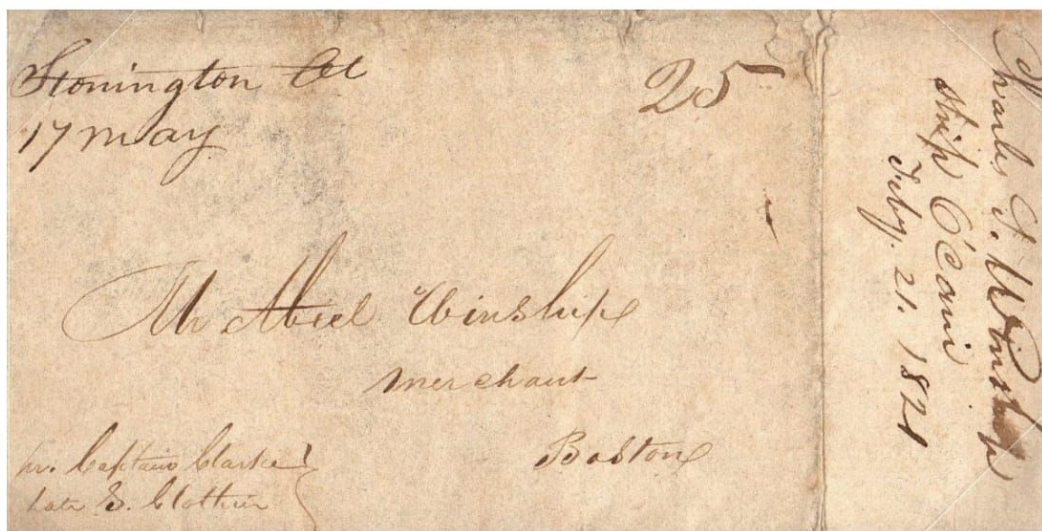 Stonington Ct
17 May
25
Mr Abiel Winship
Merchant
Boston
pr. Captain Clarke
late S. Clothier
Charles Winship
Ship O'Cain
Feby. 21. 1821